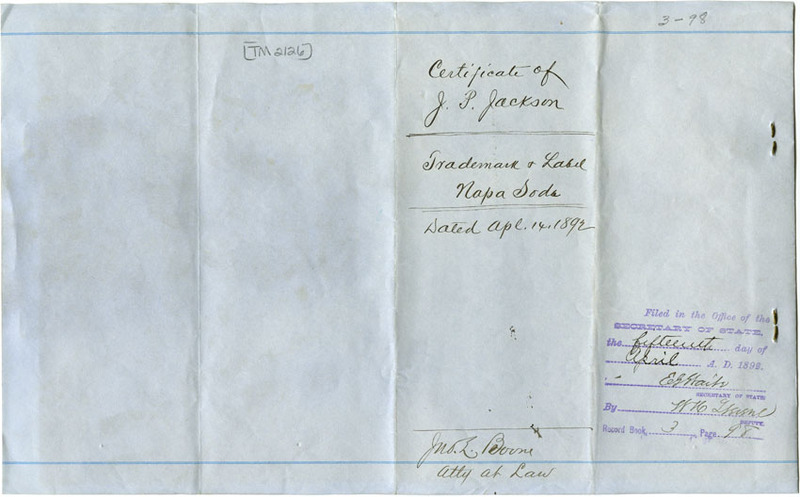 3-98
[TM2126]
Certificate of
J. P. Jackson
Trademark & Label
Napa Soda
Dated Apl. 14, 1892
Filed in the Office of the
SECRETARY OF STATE,
the fifteenth day of
April A. D. 1892.
E G Waite
SECRETARY OF STATE
By W H
DEPUTY.
Record Book, 3, Page 98
Jno. L. Boone
Atty at Law